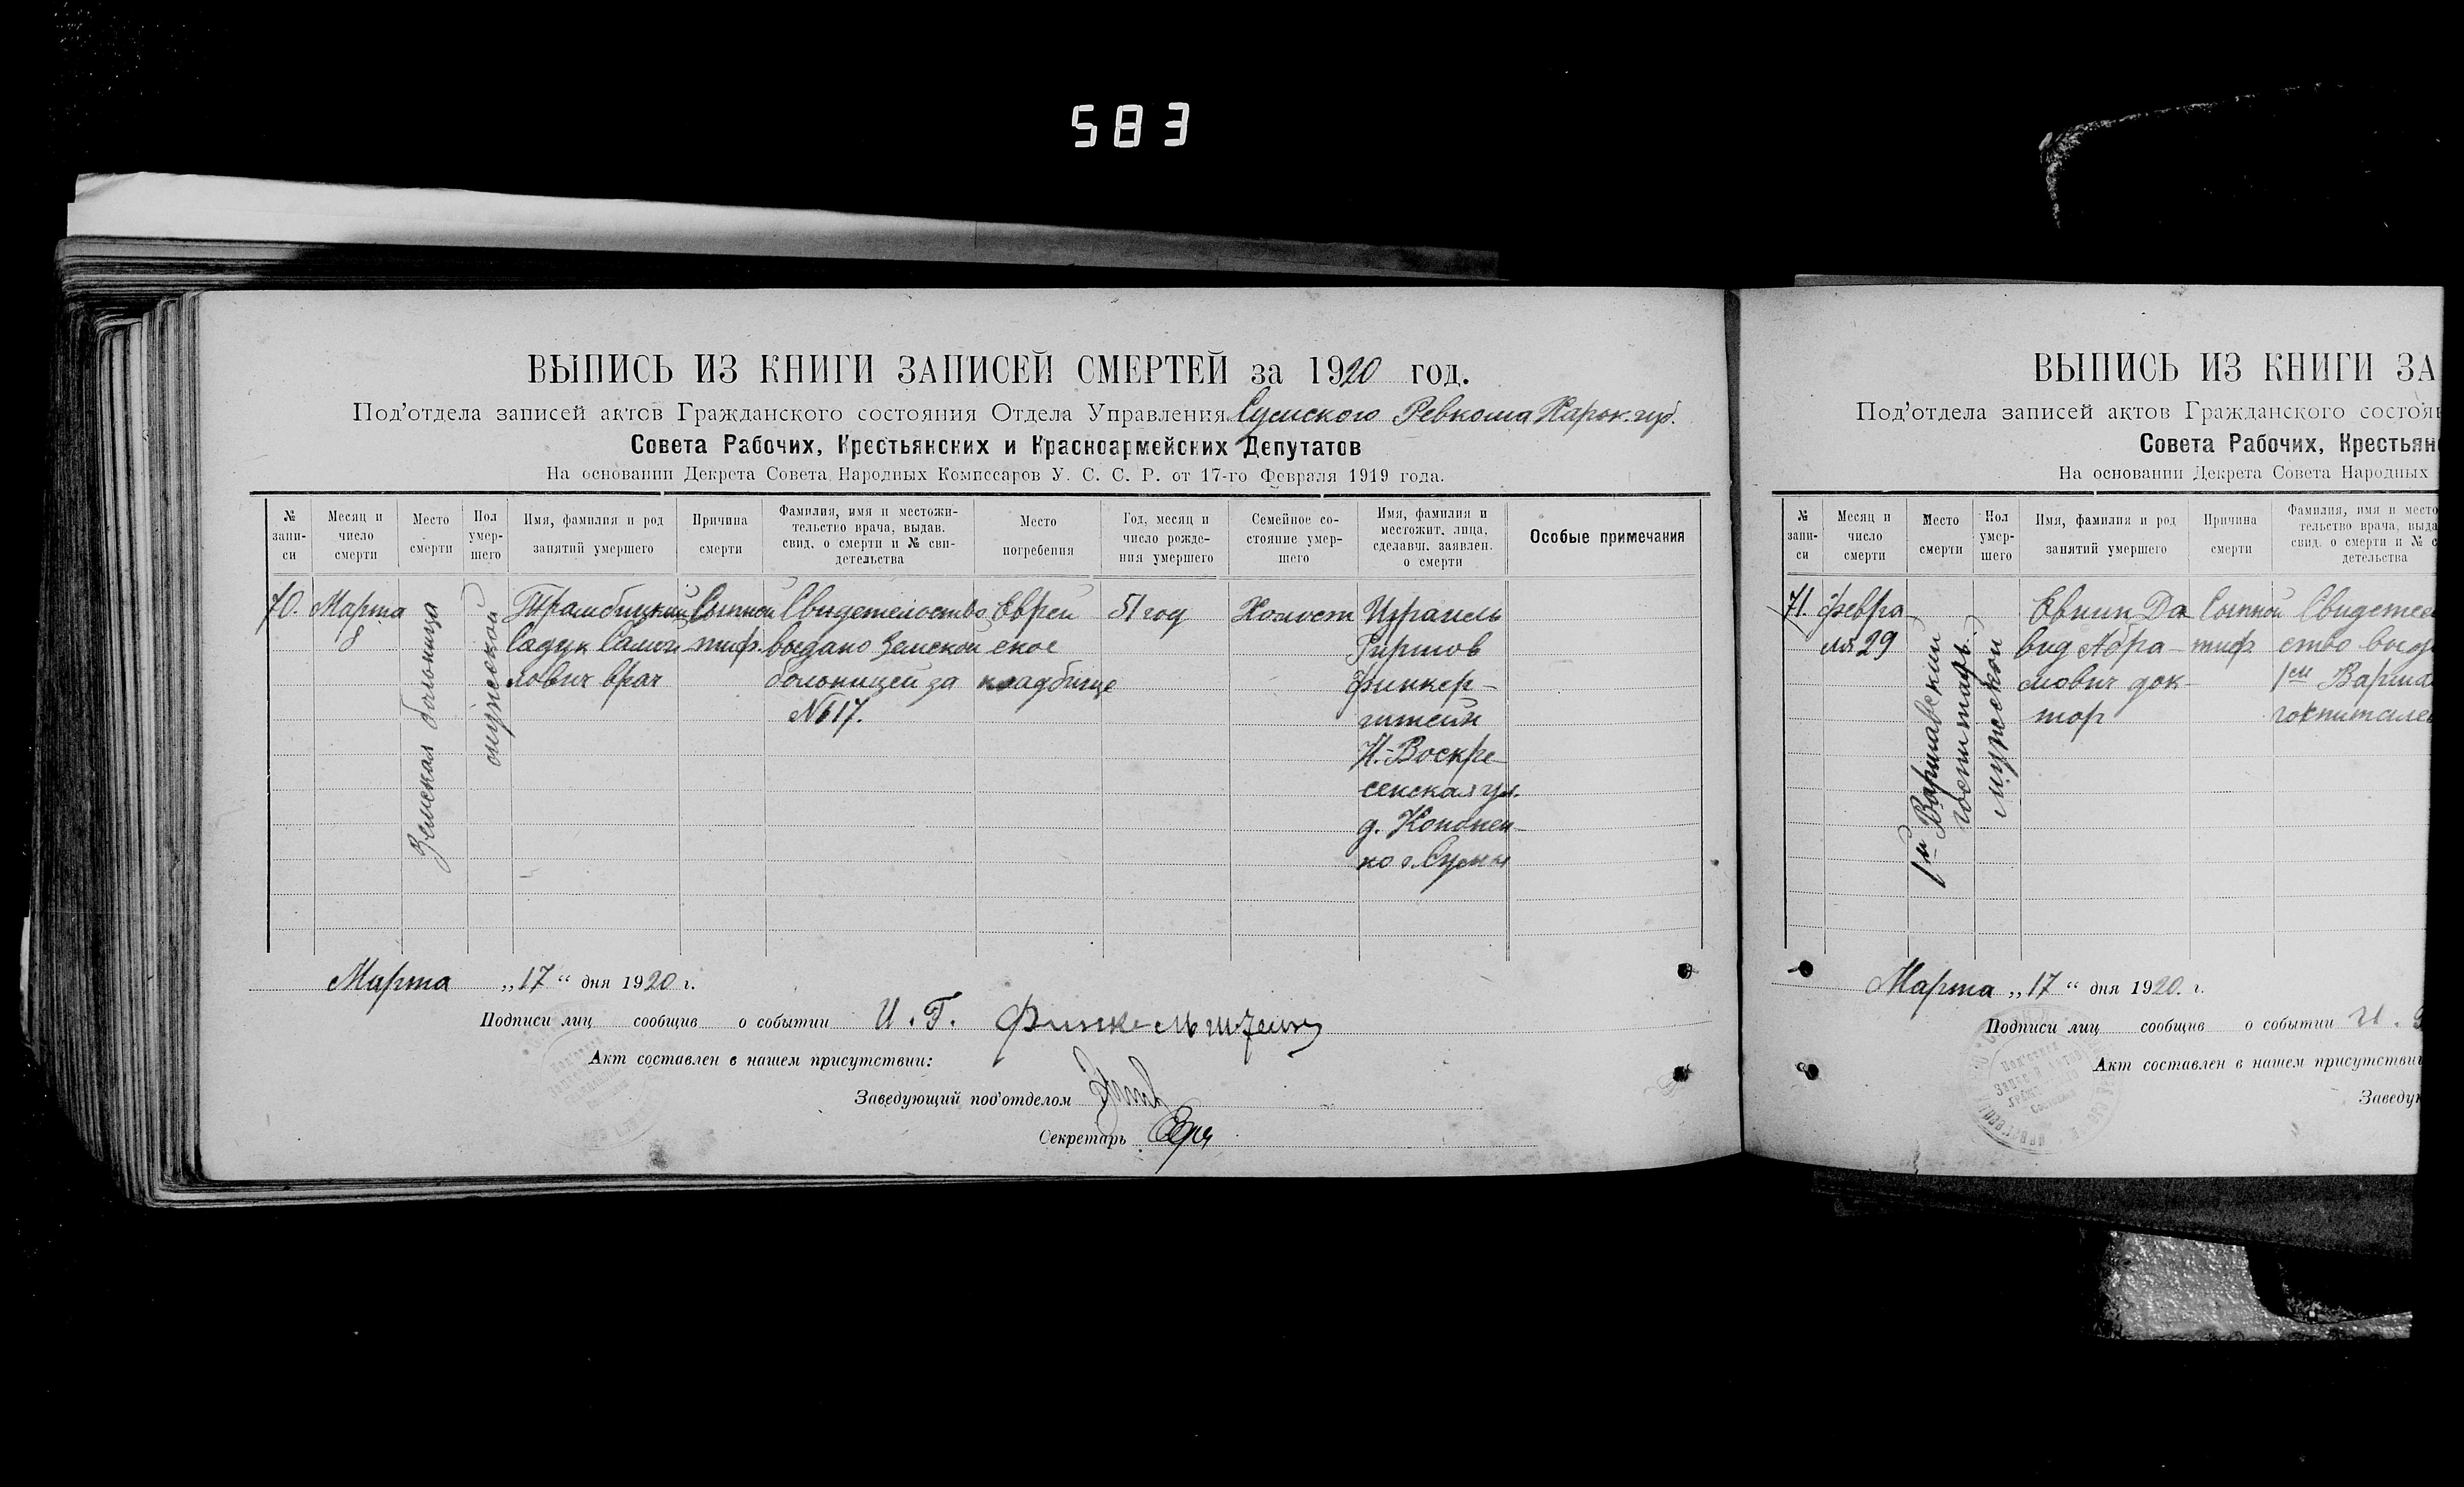 583
ВЫПИСЬ ИЗ КНИГИ ЗАПИСЕЙ СМЕРТЕЙ за 1920 год.
Под'отдела записей актов Гражданского состояния Отдела Управления Сумского Ревкома Харьк. губ.
Совета Рабочих, Крестьянских и Красноармейских Депутатов
На основании Декрета Совета Народных Комиссаров У. С. С. Р. от 17-го Февраля 1919 года.
№ запи-си
Месяц и число смерти
Место смерти
Пол умер-шего
Имя, фамилия и род занятий умершего
Причина смерти
Фамилия, имя и местожи-тельство врача, выдав. свид. о смерти и № сви-детельства
Место погребения
Год, месяц и число рожде-ния умершего
Семейное со-стояние умер-шего
Имя, фамилия и местожит. лица, сделавш. заявлен. о смерти
Особые примечания
70.
Марта
8
Земская больница
мужеской
Трамбицкий
Садук Самои
лович врач
Сыпной
тиф.
Свидетельство
выдано Земской
больницей за
№ 617.
Еврей
ское
кладбище
51 год
Холост
Израиль
Гиршов
Финкер-
штейн
Н.-Воскре-
сенская ул.
д. Кононен-
ко г. Сумы
Марта „17“ дня 1920 г.
Подписи лиц сообщив о событии И. Г. Финкельштейн
Акт составлен в нашем присутствии:
Заведующий под'отделом
Секретарь
ВЫПИСЬ ИЗ КНИГИ ЗА
Под'отдела записей актов Гражданского состоя
Совета Рабочих, Крестьян
На основании Декрета Совета Народных
№ запи-си
Месяц и число смерти
Место смерти
Пол умер-шего
Имя, фамилия и род занятий умершего
Причина смерти
Фамилия, имя и место
тельство врача, выда
свид. о смерти и №
детельства
71.
Февра
ля 29
1й Варшавский
госпиталь.
мужской
Евнин Да
вид Абра-
мович док-
тор
Сыпной
тиф
Свидетел
ство выд
1ем Варша
госпиталем
Марта „17“ дня 1920. г.
Подписи лиц сообщив о событии И.
Акт составлен в нашем присутстви
Заведу